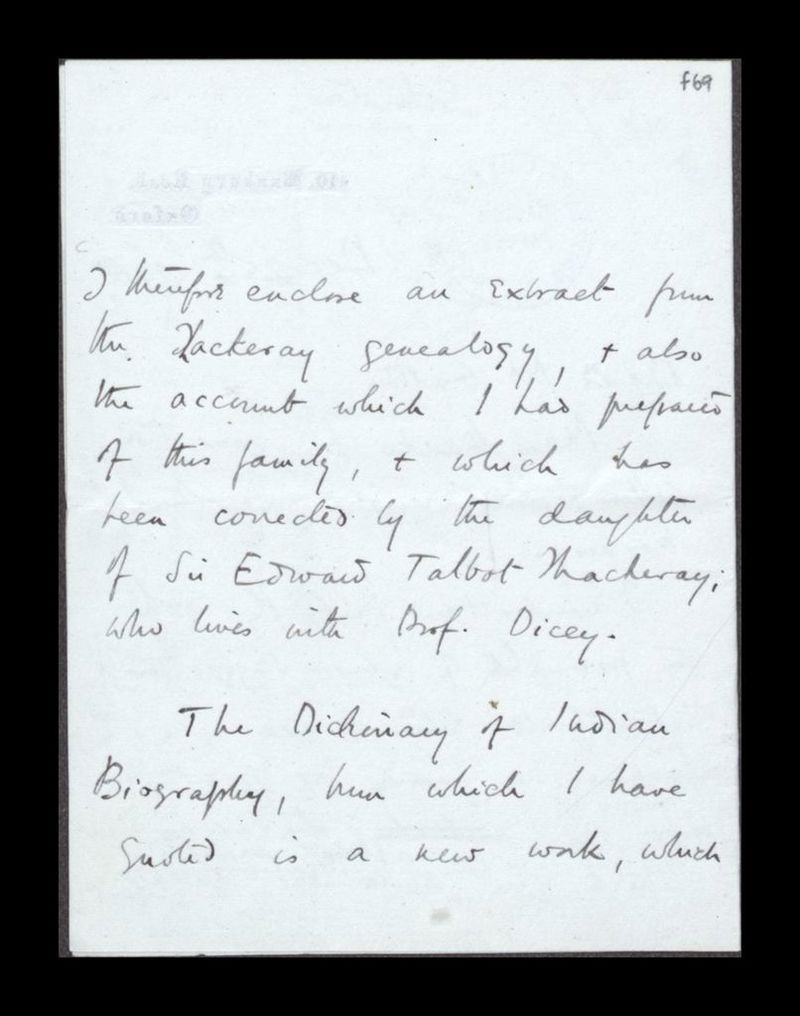 f69
I therefore enclose an extract from
the Thackeray genealogy, + also
the account which I had prepared
of this family, + which has
been corrected by the daughter
of Sir Edward Talbot Thackeray;
who lives with Prof. Dicey.
The Dictionary of Indian
Biography, from which I have
quoted is a new work, which